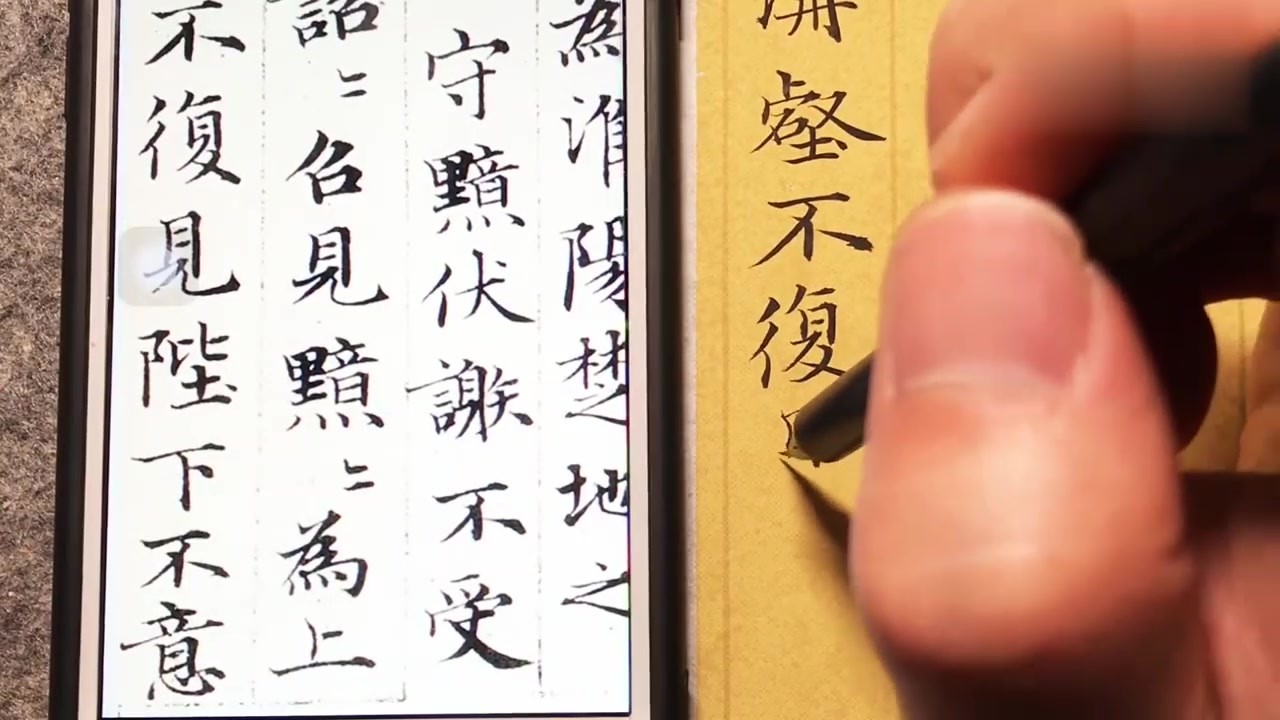 壑不復
為淮陽楚地之
守黯伏謝不受
詔〻召見黯〻為上
不復見陛下不意